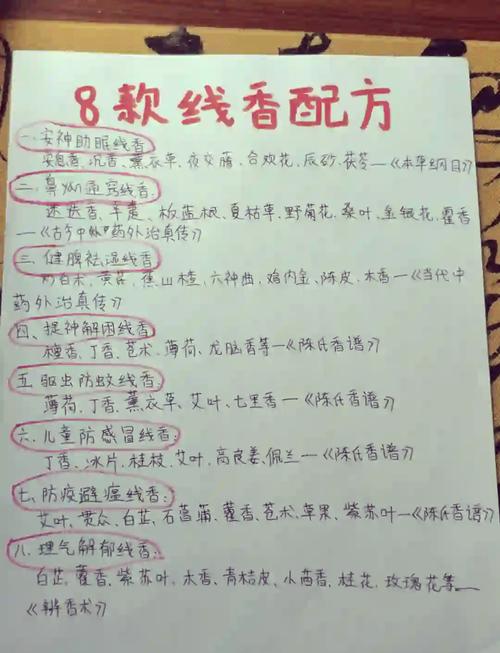 8款线香配方
一.安神助眠线香
安息香、沉香、薰衣草、夜交藤、合欢花、辰砂、茯苓—《本草纲目》
二.鼻炎通窍线香:
迷迭香、辛夷、板蓝根、夏枯草、野菊花、桑叶、金银花、藿香
—《古今中外药外治真传》
三.健脾祛湿线香
炒白术、黄芪、蕉山楂、六神曲、鸡内金、陈皮、木香—《当代中
药外治真传》
四、提神解困线香
檀香、丁香、苍术、薄荷、龙脑香等—《陈氏香谱》
五.驱虫防蚊线香:
薄荷、丁香、薰衣草、艾叶、七里香—《陈氏香谱》
六.儿童防感冒线香:
丁香、冰片、桂枝、艾叶、高良姜、佩兰—《陈氏香谱》
七.防疫避瘟线香:
艾叶、贯众、白芷、石菖蒲、藿香、苍术、草果、紫苏叶—《陈氏香谱》
八.理气解郁线香:
白芷、藿香、紫苏叶、木香、青桔皮、小茴香、桂花、玫瑰花等—
《辨香术》